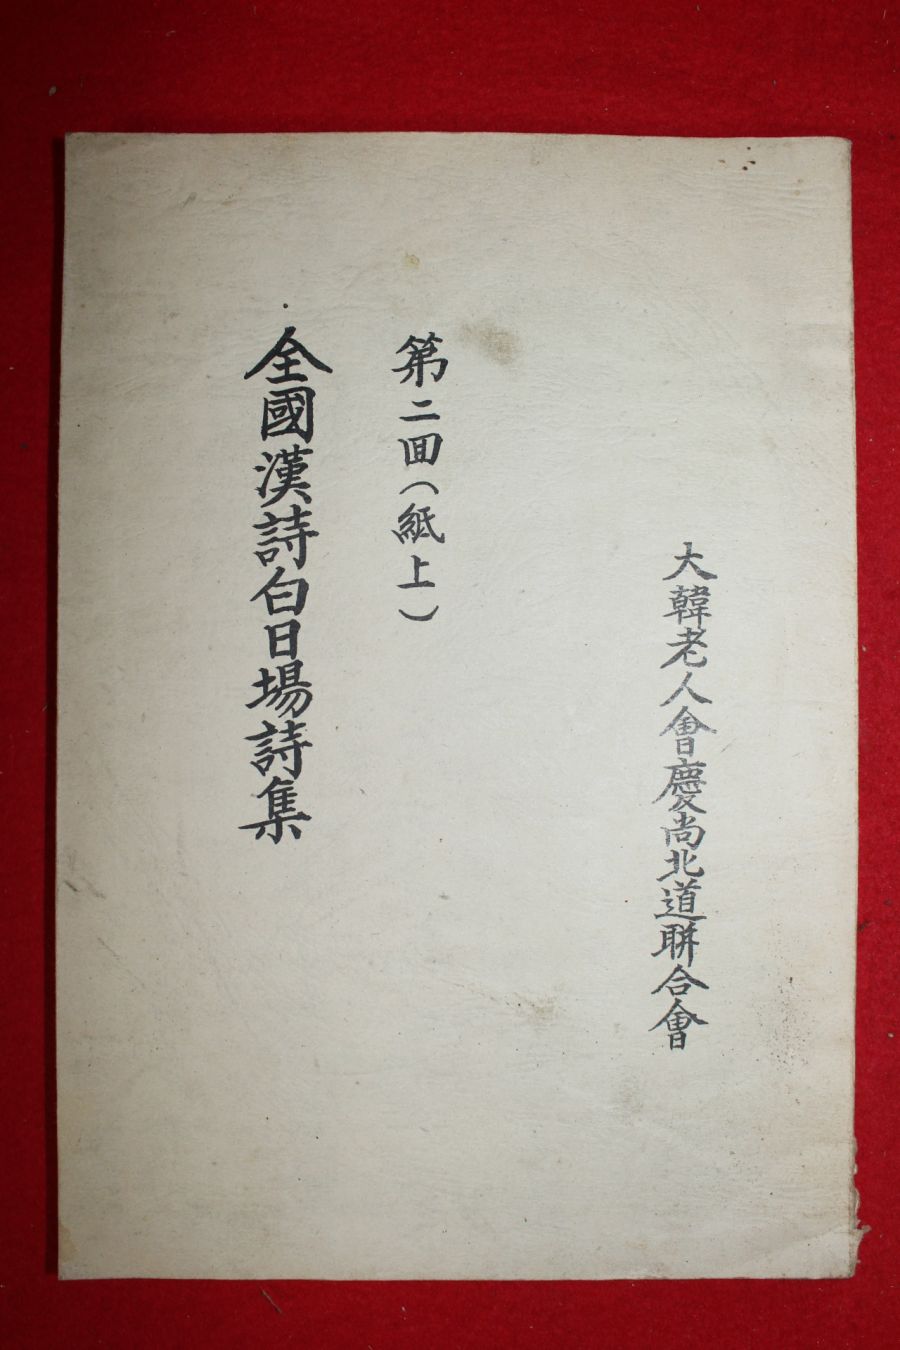 大韓老人會慶尙北道聯合會
第二回(紙上)
全國漢詩白日場詩集